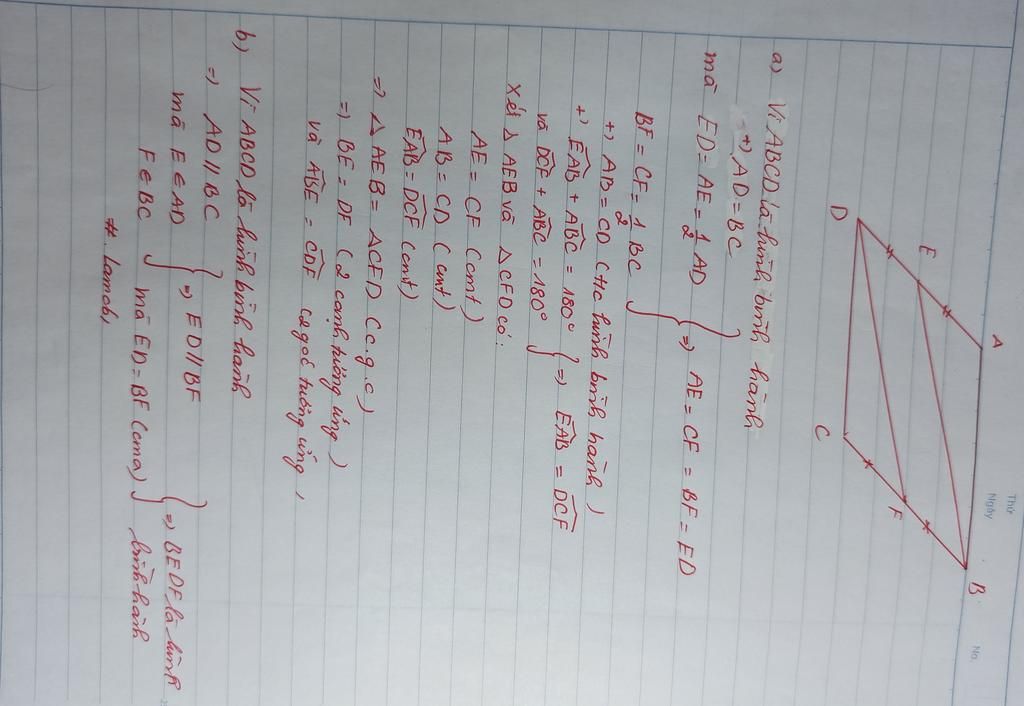 Thứ
Ngày
No.
A
B
E
F
D
C
a) Vì ABCD là hình bình hành
+) AD = BC
mà ED = AE = 1/2 AD } => AE = CF = BF = ED
BF = CF = 1/2 BC
+) AB = CD (t/c hình bình hành)
+) EAB + ABC = 180° } => EAB = DCF
và DCF + ABC = 180°
Xét △ AEB và △ CFD có:
AE = CF (cmt)
AB = CD (cmt)
EAB = DCF (cmt)
=> △ AEB = △ CFD (c.g.c)
=> BE = DF (2 cạnh tương ứng)
và ABE = CDF (2 góc tương ứng)
b) Vì ABCD là hình bình hành
=> AD // BC
mà E ∈ AD } => ED // BF } => BEDF là hình
F ∈ BC mà ED = BF (cma) bình hành